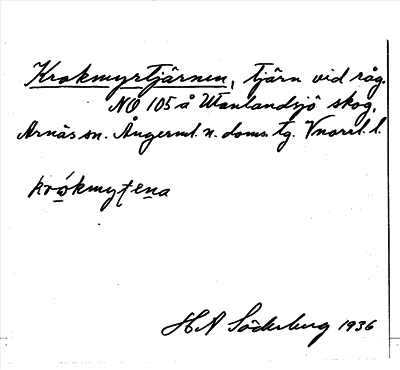 Krokmyrtjärnen, tjärn vid råg.
NO 105 å Utanlandsjö skog,
Arnäs sn. Ångerml. n. doms. tg. Vnorrl. l.
krω̄́kmyt̨ena
H A Söderberg 1936